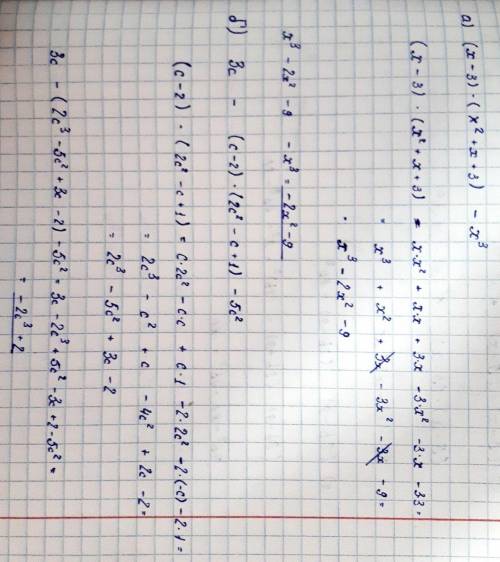 а) (x-3)·(x²+x+3) - x³
(x-3)·(x²+x+3) = x·x² + x·x + 3·x - 3·x² - 3·x - 33 =
= x³ + x² + 3x - 3x² - 3x - 9 =
= x³ - 2x² - 9
x³ - 2x² - 9 - x³ = -2x² - 9
б) 3c - (c-2)·(2c² - c + 1) - 5c²
(c-2)·(2c² - c + 1) = c·2c² - c·c + c·1 - 2·2c² - 2·(-c) - 2·1 =
= 2c³ - c² + c - 4c² + 2c - 2 =
= 2c³ - 5c² + 3c - 2
3c - (2c³ - 5c² + 3c - 2) - 5c² = 3c - 2c³ + 5c² - 3c + 2 - 5c² =
= -2c³ + 2